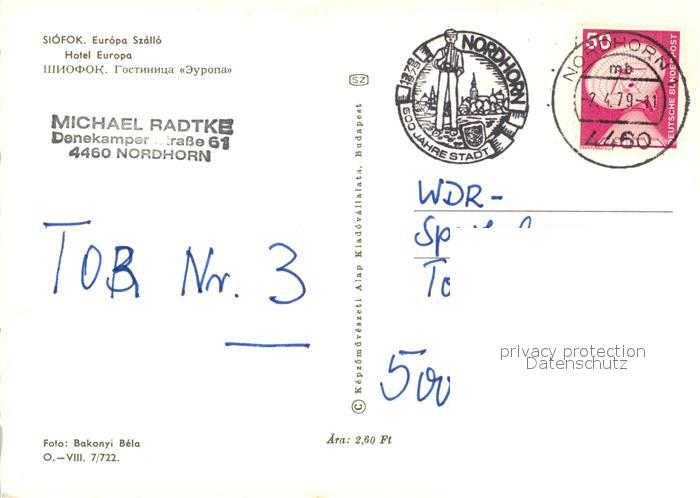 SIÓFOK. Európa Szálló
Hotel Europa
ШИОФОК. Гостиница «Эуропа»
MICHAEL RADTKE
Denekamper straße 61
4460 NORDHORN
TOR Nr. 3
Foto: Bakonyi Béla
O.—VIII. 7/722.
SZ
© Képzőművészeti Alap Kiadóvállalata, Budapest
Ára: 2,60 Ft
1379 1979
NORDHORN
600 JAHRE STADT
50
DEUTSCHE BUNDESPOST
NORDHORN
mb
-2.4.79-11
4460
WDR-
Sp
To
500
privacy protection
Datenschutz